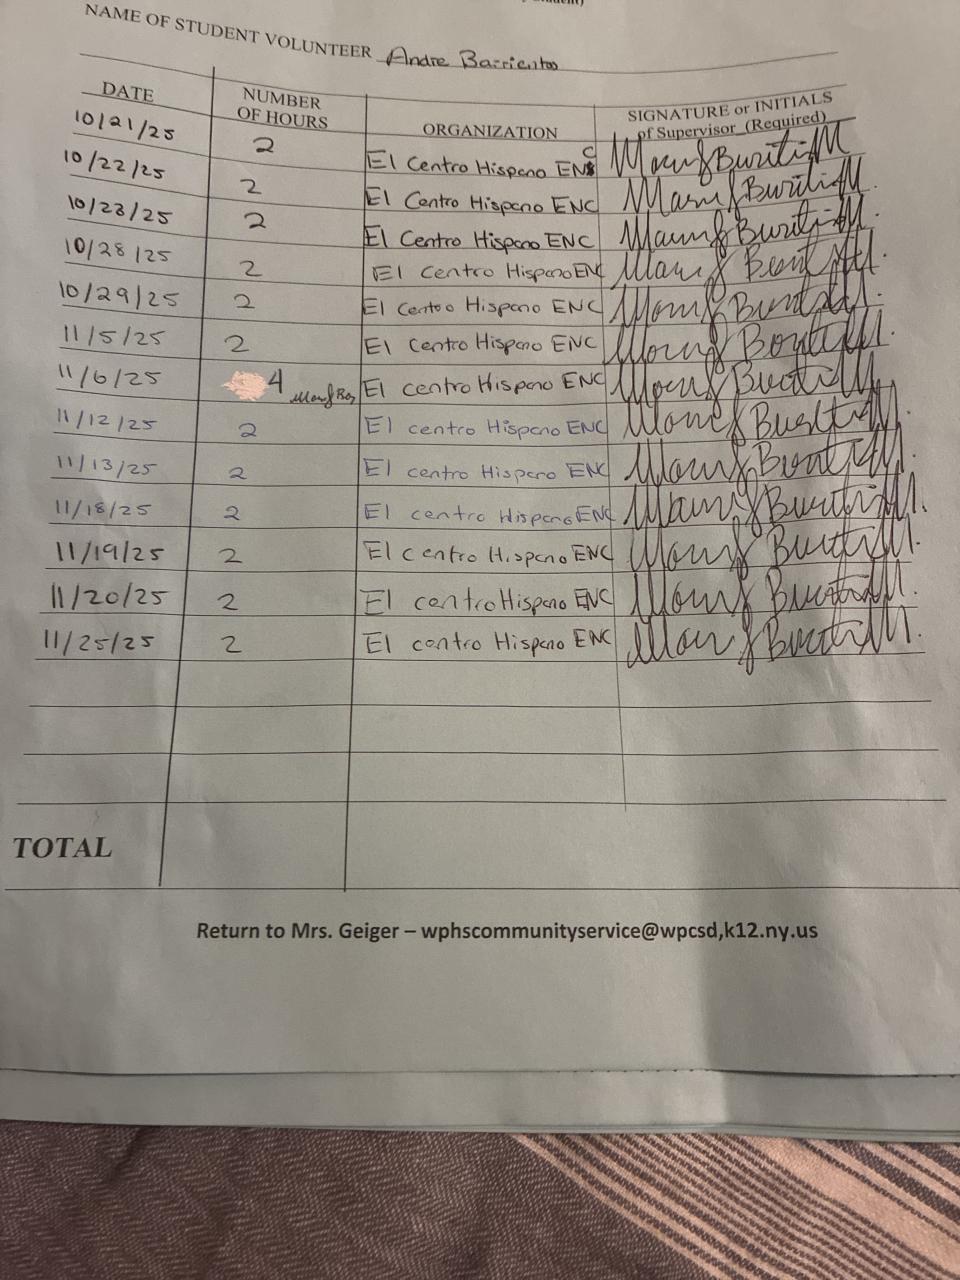 NAME OF STUDENT VOLUNTEER Andre Barrientos
DATE NUMBER OF HOURS ORGANIZATION SIGNATURE or INITIALS of Supervisor (Required)
10/21/25 2 El Centro Hispano ENC
10/22/25 2 El Centro Hispano ENC
10/23/25 2 El Centro Hispano ENC
10/28/25 2 El Centro Hispano ENC
10/29/25 2 El Centro Hispano ENC
11/5/25 2 El Centro Hispano ENC
11/6/25 4 El centro Hispano ENC
11/12/25 2 El centro Hispano ENC
11/13/25 2 El centro Hispano ENC
11/18/25 2 El centro Hispano ENC
11/19/25 2 El centro Hispano ENC
11/20/25 2 El centro Hispano ENC
11/25/25 2 El centro Hispano ENC
TOTAL
Return to Mrs. Geiger – wphscommunityservice@wpcsd,k12.ny.us